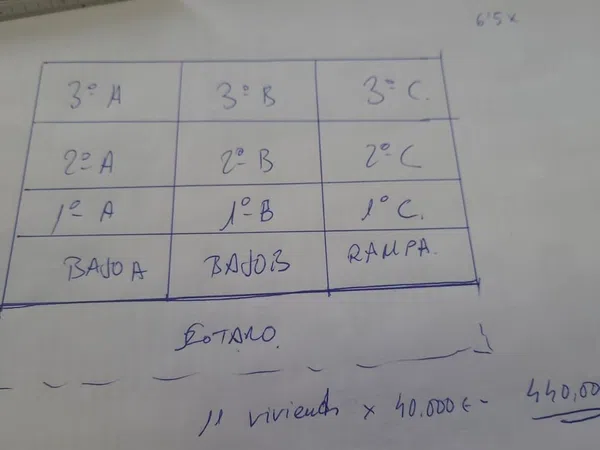 6'5x
3º A 3º B 3º C.
2º A 2º B 2º C
1º A 1º B 1º C.
BAJO A BAJO B RAMPA.
SOTANO.
11 viviendas x 40.000€ = 440,00